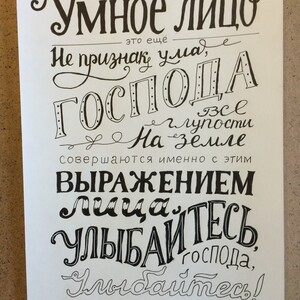 Умное лицо
это еще
Не признак ума,
господа
все
глупости
На земле
совершаются именно с этим
выражением
лица.
Улыбайтесь,
господа,
Улыбайтесь!